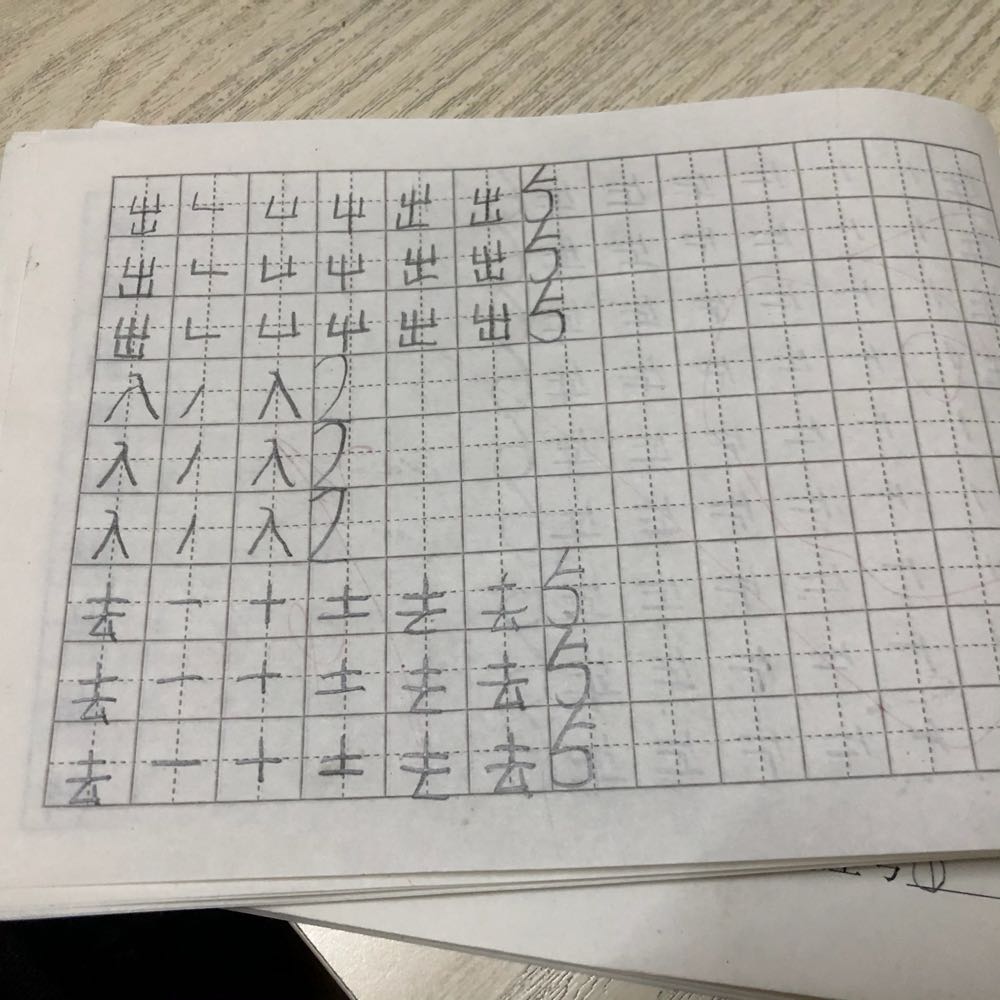 出 ㄴ 凵 屮 出 出 5
出 ㄴ 凵 屮 出 出 5
出 ㄴ 凵 屮 出 出 5
入 丿 入 2
入 丿 入 2
入 丿 入 2
去 一 十 土 去 5
去 一 十 土 去 5
去 一 十 土 去 5